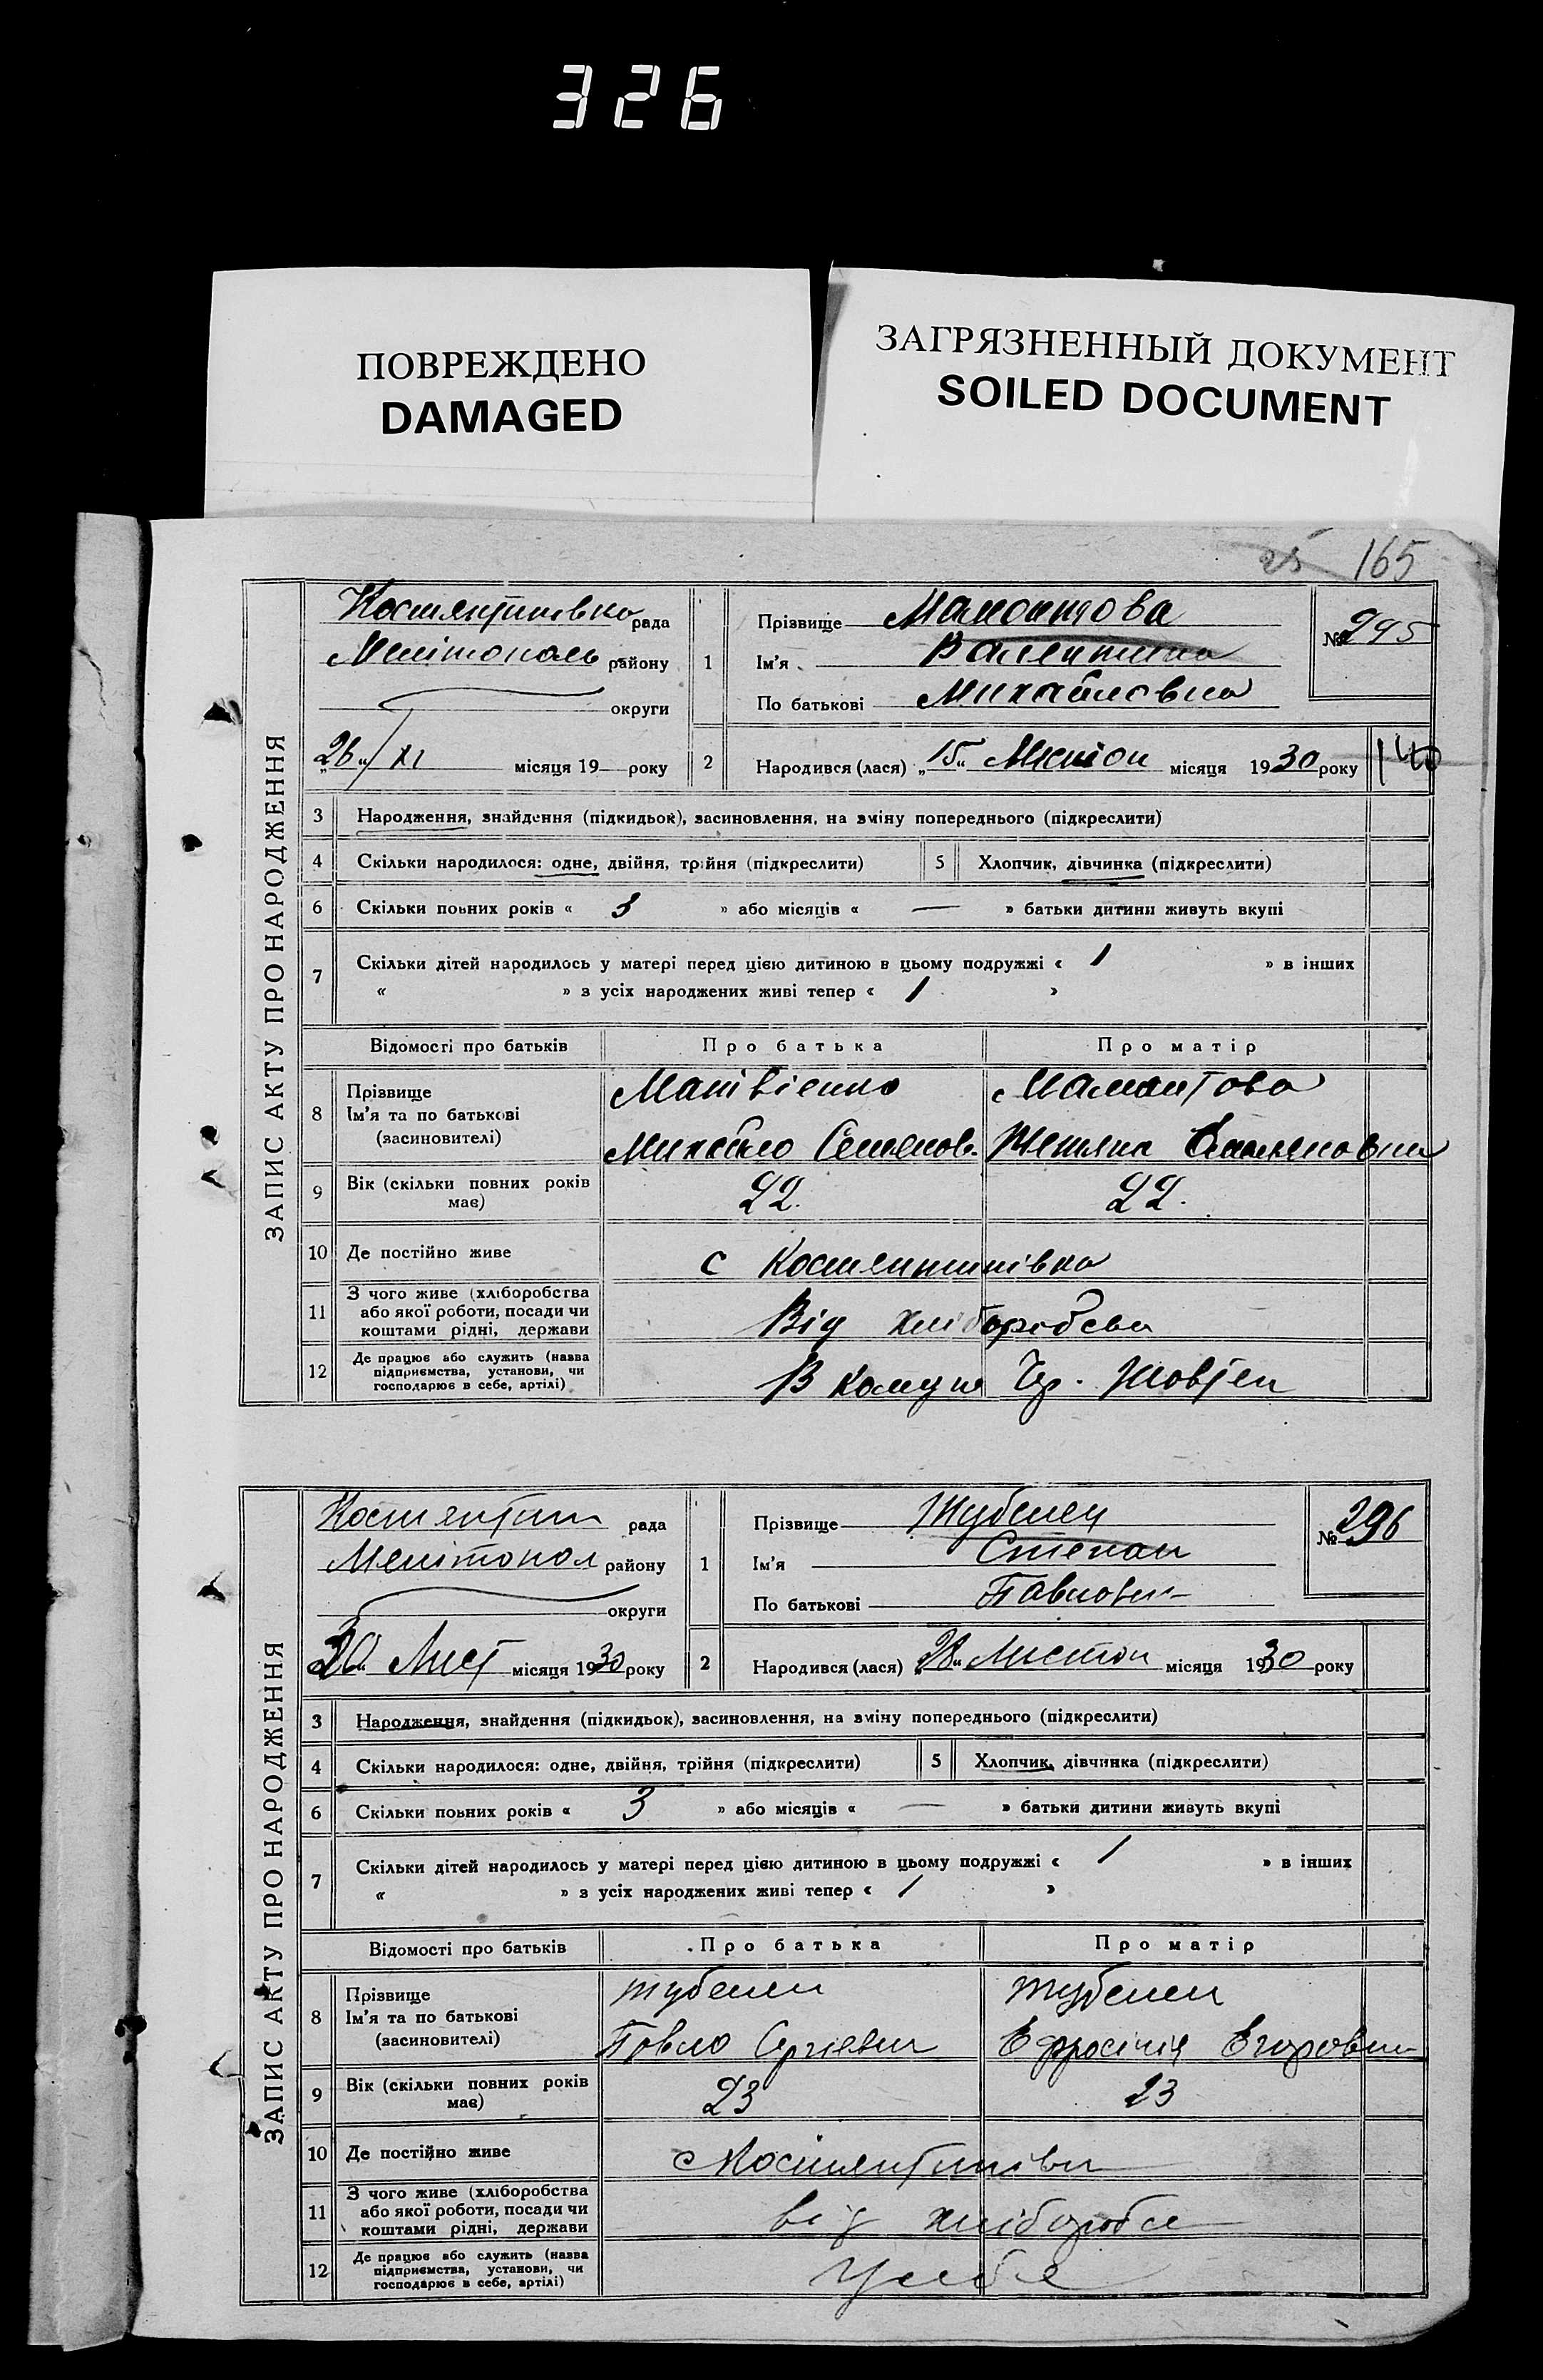 326
ПОВРЕЖДЕНО
DAMAGED
ЗАГРЯЗНЕННЫЙ ДОКУМЕНТ
SOILED DOCUMENT
25 165
ЗАПИС АКТУ ПРО НАРОДЖЕННЯ
Костянтинівка рада
Мелітополь району
округи
„26“/XI місяця 19 року
1
Прізвище Мамонтова
Ім'я Валентина
По батькові Михайловна
№ 295
2 Народився (лася) „15“ Листоп місяця 1930 року
140
3 Народження, знайдення (підкидьок), засиновлення, на зміну попереднього (підкреслити)
4 Скільки народилося: одне, двійня, трійня (підкреслити) 5 Хлопчик, дівчинка (підкреслити)
6 Скільки повних років « 3 » або місяців « — » батьки дитини живуть вкупі
7 Скільки дітей народилось у матері перед цією дитиною в цьому подружжі « 1 » в інших
« » з усіх народжених живі тепер « 1 »
Відомості про батьків Про батька Про матір
8 Прізвище
Ім'я та по батькові
(засиновителі)
Матвіенко Мамонтова
Михайло Семенов.
9 Вік (скільки повних років
має)
22. 22.
10 Де постійно живе с Костянтинівка
11 З чого живе (хліборобства
або якої роботи, посади чи
коштами рідні, держави
Від хліборобства
12 Де працює або служить (назва
підприємства, установи, чи
господарює в себе, артілі)
В комуне Чр. Жовтен
ЗАПИС АКТУ ПРО НАРОДЖЕННЯ
Костянтин рада
Мелітопол району
округи
30 Лист місяця 1930 року
1
Прізвище Тубелец
Ім'я Степан
По батькові Павлович
№ 296
2 Народився (лася) „28“ Листоп місяця 1930 року
3 Народження, знайдення (підкидьок), засиновлення, на зміну попереднього (підкреслити)
4 Скільки народилося: одне, двійня, трійня (підкреслити) 5 Хлопчик, дівчинка (підкреслити)
6 Скільки повних років « 3 » або місяців « — » батьки дитини живуть вкупі
7 Скільки дітей народилось у матері перед цією дитиною в цьому подружжі « 1 » в інших
« » з усіх народжених живі тепер « 1 »
Відомості про батьків Про батька Про матір
8 Прізвище
Ім'я та по батькові
(засиновителі)
Тубелец Тубелец
Павло Сергіевич Ефросінія Егоровн
9 Вік (скільки повних років
має)
23 23
10 Де постійно живе Костянтинівка
11 З чого живе (хліборобства
або якої роботи, посади чи
коштами рідні, держави
від хліборобс
12 Де працює або служить (назва
підприємства, установи, чи
господарює в себе, артілі)
У себе